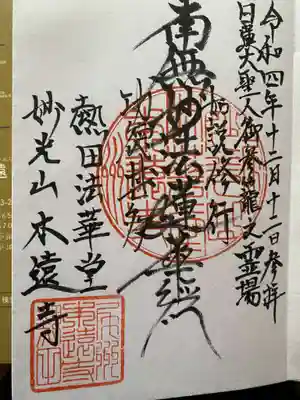 令和四年十二月十二日参拝
日蓮大聖人御参籠之霊場
如説修行
南無妙法蓮華経
熱田法華堂
妙光山本遠寺